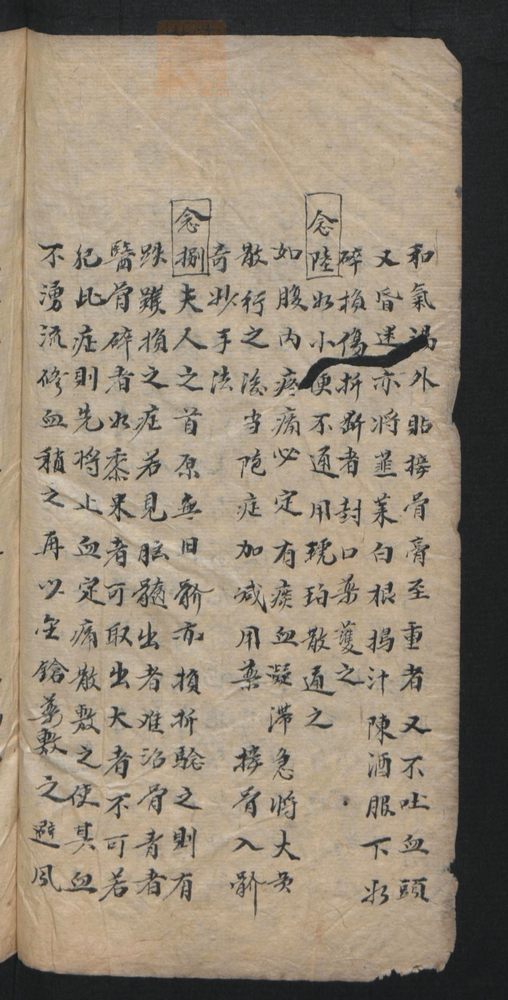 和氣湯外貼接骨膏至重者又不吐血頭
又昏迷亦將韮菜白根搗汁陳酒服下如
碎損傷折斷者封口藥護之
念陸如小便不通用琥珀散通之
如腹內疼痛必定有瘀血凝滯急將大黃
散行之後當隨症加減用藥 接骨入骱
奇妙手法
念捌夫人之首原無臼骱亦損折騐之則有
跌蹼損之症若見腦髓出者难治骨青者
醫骨碎者如黍米者可取出大者不可若
犯此症則先將止血定痛散敷之使其血
不湧流俟血稍之再以金鎗藥敷之避風